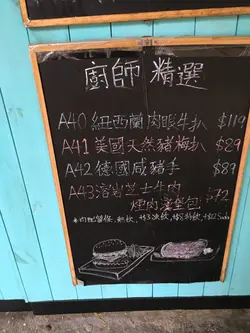 廚師精選
A40 紐西蘭肉眼牛扒 $119
A41 美國天然豬梅扒 $89
A42 德國咸豬手 $89
A43 溶岩芝士牛肉
煙肉漢堡包 $72